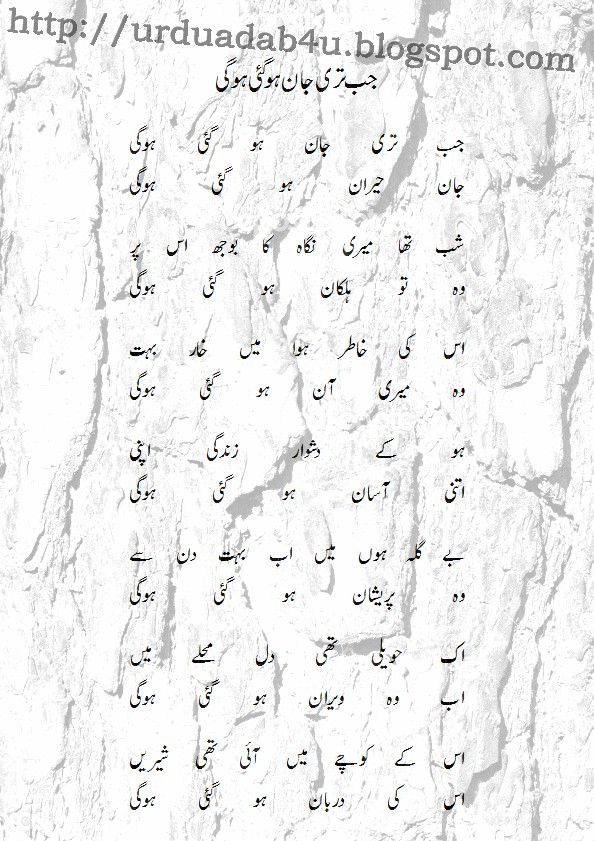 http://urduadab4u.blogspot.com
جب تری جان ہو گئی ہوگی
جب تری جان ہو گئی ہوگی
جان حیران ہو گئی ہوگی
شب تھا میری نگاہ کا بوجھ اس پر
وہ تو ہلکان ہو گئی ہوگی
اس کی خاطر ہوا میں خار بہت
وہ میری آن ہو گئی ہوگی
ہو کے دشوار زندگی اپنی
اتنی آسان ہو گئی ہوگی
بے گلہ ہوں میں اب بہت دن سے
وہ پریشان ہو گئی ہوگی
اک حویلی تھی دل محلے میں
اب وہ ویران ہو گئی ہوگی
اس کے کوچے میں آئی تھی شیریں
اس کی دربان ہو گئی ہوگی